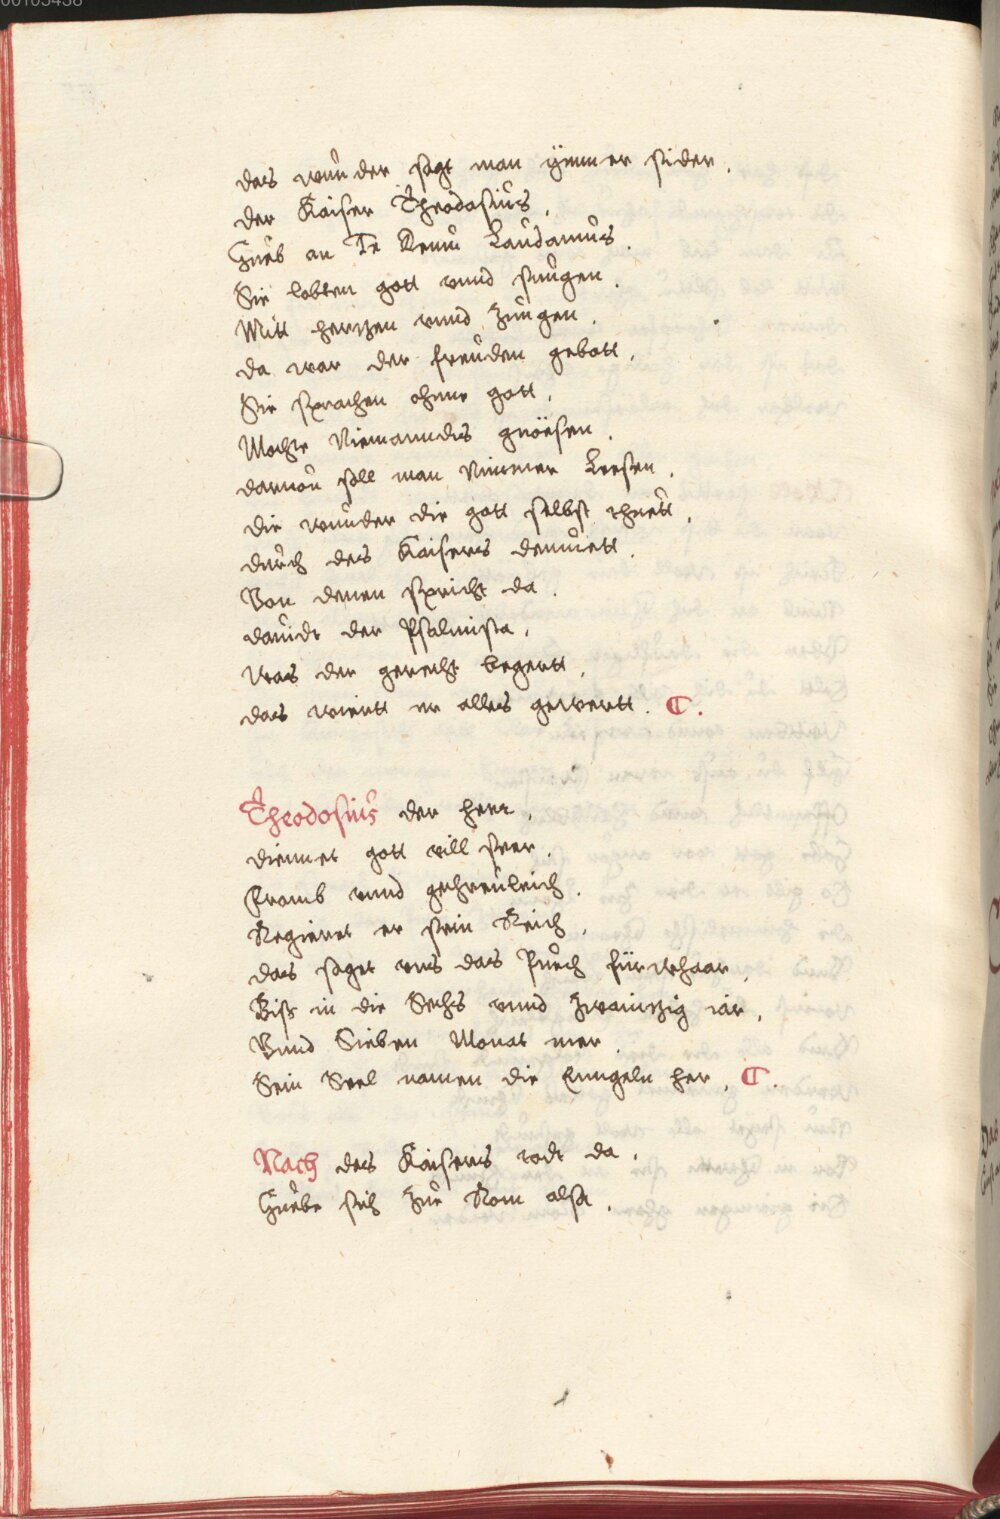 das wunder sagt man ÿmmer sider.
der Kaiser Theodosius.
Hueb an Te Deum Laudamus.
Sie lobten gott vnnd sungen.
Mitt hertzen vnnd Zungen.
da war der freuden gebott.
Sie sprachen ohnne gott.
Mochte Niemanndts
daruon soll man Nimmer
die wunder die gott selbst thuett.
durch des Kaisers demuett.
Von denen spricht da.
dauidt der Psalmista.
was der gerecht begertt.
das wiertt er alles gewertt. C.
Theodosius der herr.
diennet gott vill seer.
Fromb vnnd gethreulich.
Regieret er sein Reich.
das saget vns das Puech fürwhaar.
Biß in die Sechs vnnd Zwaintzig iar.
Vnnd Sieben Monat mer.
Sein Seel namen die Enngeln her. C.
Nach des Kaisers todt da.
Huebe sich Zue Rom alsa.